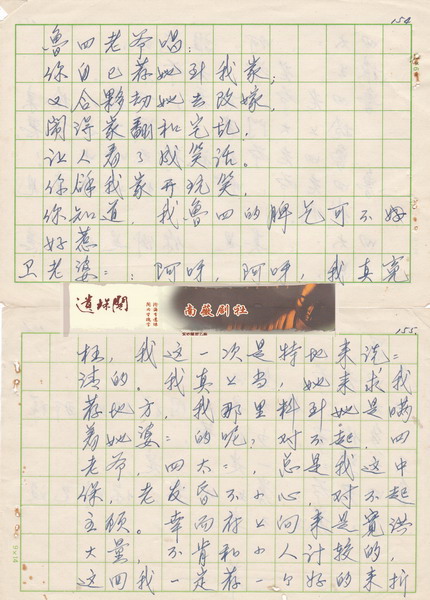 154
鲁四老爷唱：
你自己荐她到我家；
又合夥劫她去改嫁，
闹得家翻和宅乱，
让人看了成笑话。
你拿我家开玩笑，
你知道，我鲁四的脾气可不好
好惹
卫老婆=：阿呀，阿呀，我真冤
遗珠阁
南薇剧社
155
枉，我这一次是特地来说=
清的。我真上当，她来求我
荐地方，我那里料到她是瞒
着她婆=的呢，对不起，四
老爷，四太=，总是我这中
保，老发昏不小心，对不起
主顾。幸而府上向来是寬洪
大量，不肯和小人计较的，
这回我一定荐一个好的来折